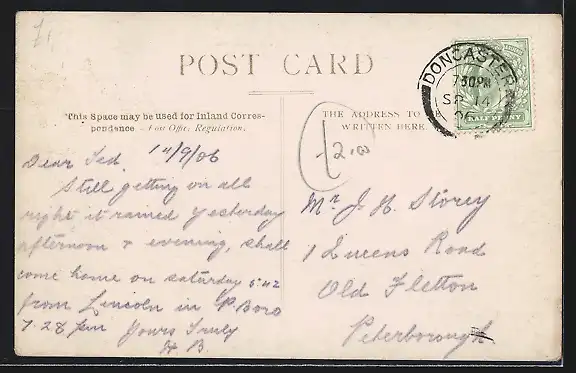 POST CARD
This Space may be used for Inland Corres-
pondence — Post Office Regulation.
THE ADDRESS TO
WRITTEN HERE
DONCASTER
730PM
SP 14
06
HALFPENNY
12.00
14/9/06
Dear Ted
Still getting on all
right it rained yesterday
afternoon & evening, shall
come home on saturday 5.42
from Lincoln in P.Boro
7.28 pm Yours Truly
H B.
Mr J. H. Storey
1 Queens Road
Old Fletton
Peterborough